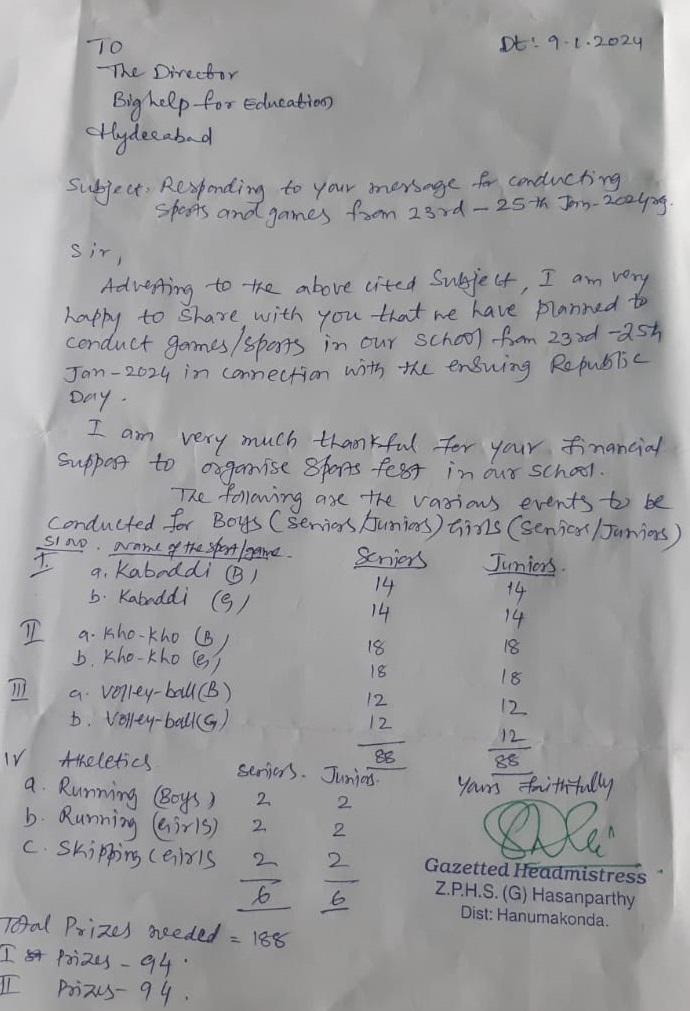 To
Dt: 9.1.2024
The Director
Bighelp for Education
Hyderabad
Subject: Responding to your message for conducting
sports and games from 23rd - 25th Jan-2024 reg.
Sir,
Adverting to the above cited Subject, I am very
happy to share with you that we have planned to
conduct games/sports in our school from 23rd -25th
Jan-2024 in connection with the ensuing Republic
Day.
I am very much thankful for your financial
support to organise sports fest in our school.
The following are the various events to be
conducted for Boys (Seniors/Juniors) Girls (Seniors/Juniors)
Sl no. Name of the sport/game. Seniors Juniors.
I. a. Kabaddi (B) 14 14
b. Kabaddi (G) 14 14
II a. Kho-Kho (B) 18 18
b. Kho-Kho (G) 18 18
III a. Volley-ball (B) 12 12
b. Volley-ball (G) 12 12
88 88
IV Atheletics Seniors. Juniors.
a. Running (Boys) 2 2
b. Running (Girls) 2 2
c. Skipping (Girls 2 2
6 6
Yours faithfully
Gazetted Headmistress
Z.P.H.S. (G) Hasanparthy
Dist: Hanumakonda.
Total Prizes needed = 188
I Prizes - 94.
II Prizes - 94.